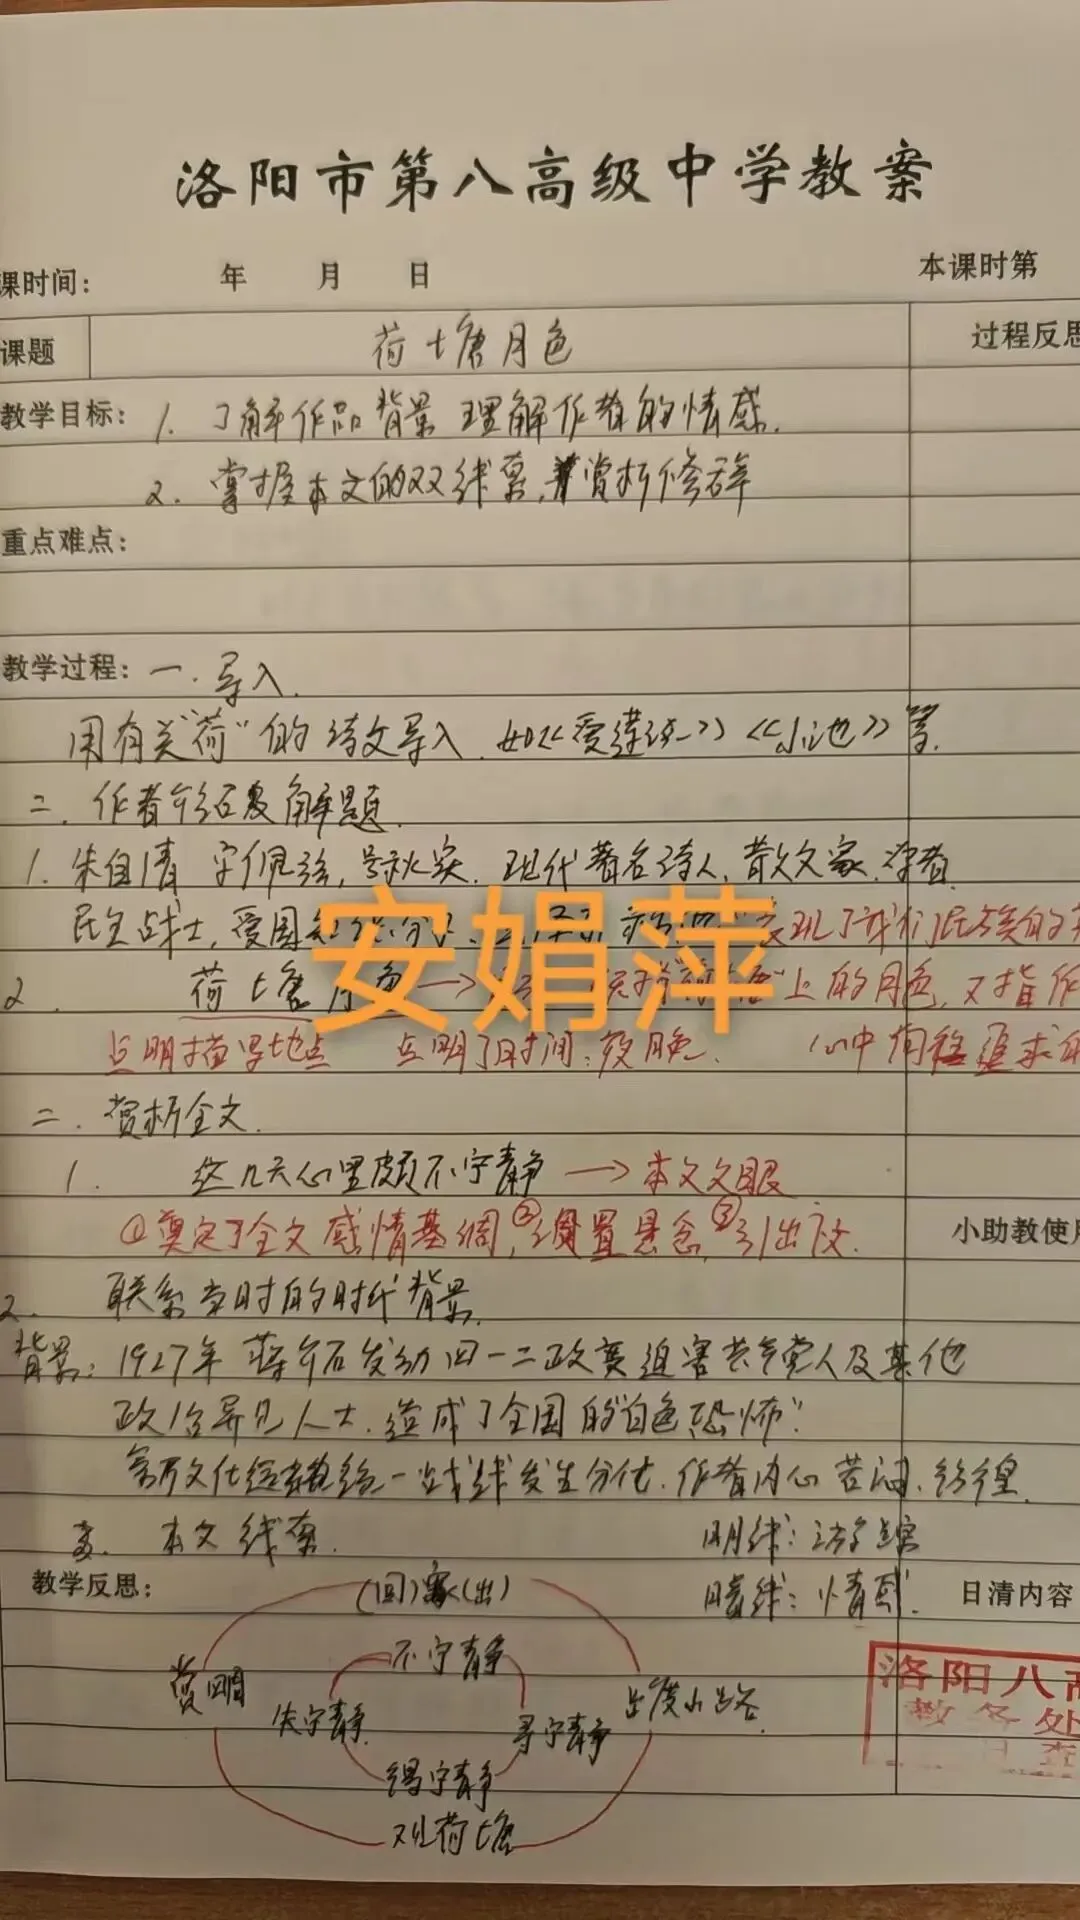 洛阳市第八高级中学教案
课时间： 年 月 日 本课时第
课题 荷塘月色 过程反思
教学目标： 1. 了解作品背景 理解作者的情感.
2. 掌握本文的双线索，并赏析修辞
重点难点：
教学过程： 一. 导入.
用有关“荷”的诗文导入. 如《爱莲说》《小池》等.
二. 作者介绍及解题.
1. 朱自清 字佩弦，号秋实. 现代著名诗人，散文家. 学者.
民主战士，爱国 表现了我们民族的
安娟萍
2. 荷塘月色 → 上的月色，又指作
点明描写地点 点明了时间：夜晚. 心中有追求
二. 赏析全文.
1. 这几天心里颇不宁静 → 本文文眼
①奠定了全文感情基调，②设置悬念，③引出下文. 小助教使用
2. 联系当时的时代背景.
背景：1927年 蒋介石发动四一二政变迫害共产党人及其他
政治异见人士. 造成了全国的“白色恐怖”.
统一战线发生分化. 作者内心苦闷、彷徨.
3. 本文线索. 明线：游踪
教学反思： (回)家(出) 暗线：情感. 日清内容
不宁静
赏四周 失宁静 寻宁静 走废小路
得宁静
观荷塘
洛阳八高
教务处
日查